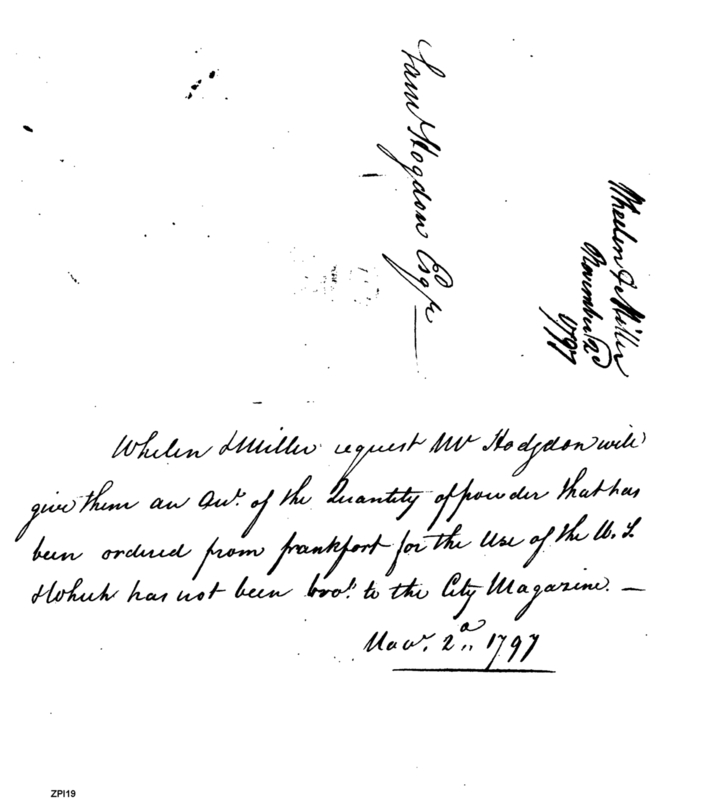 Saml Hogdon Esqre
Wheelen & Miller
November 2d
1797
Whelen & Miller request Mr Hodgdon will
give them an Acct. of the Quantity of powder that has
been ordered from frankfort for the Use of the U. S.
& Which has not been bro.t to the City Magazine. —
Novr. 2d 1797
ZPI19